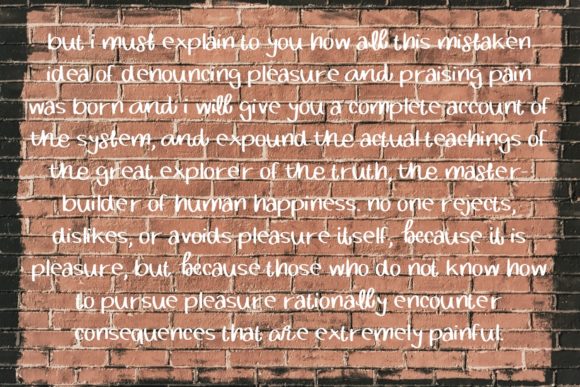 but i must explain to you how all this mistaken
idea of denouncing pleasure and praising pain
was born and i will give you a complete account of
the system, and expound the actual teachings of
the great explorer of the truth, the master-
builder of human happiness. no one rejects,
dislikes, or avoids pleasure itself, because it is
pleasure, but because those who do not know how
to pursue pleasure rationally encounter
consequences that are extremely painful.